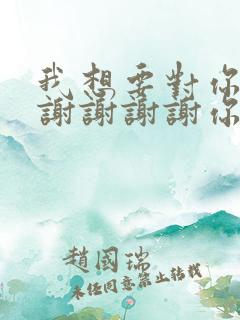 我想要對你
謝謝謝謝你
趙國瑞
未經同意禁止轉載